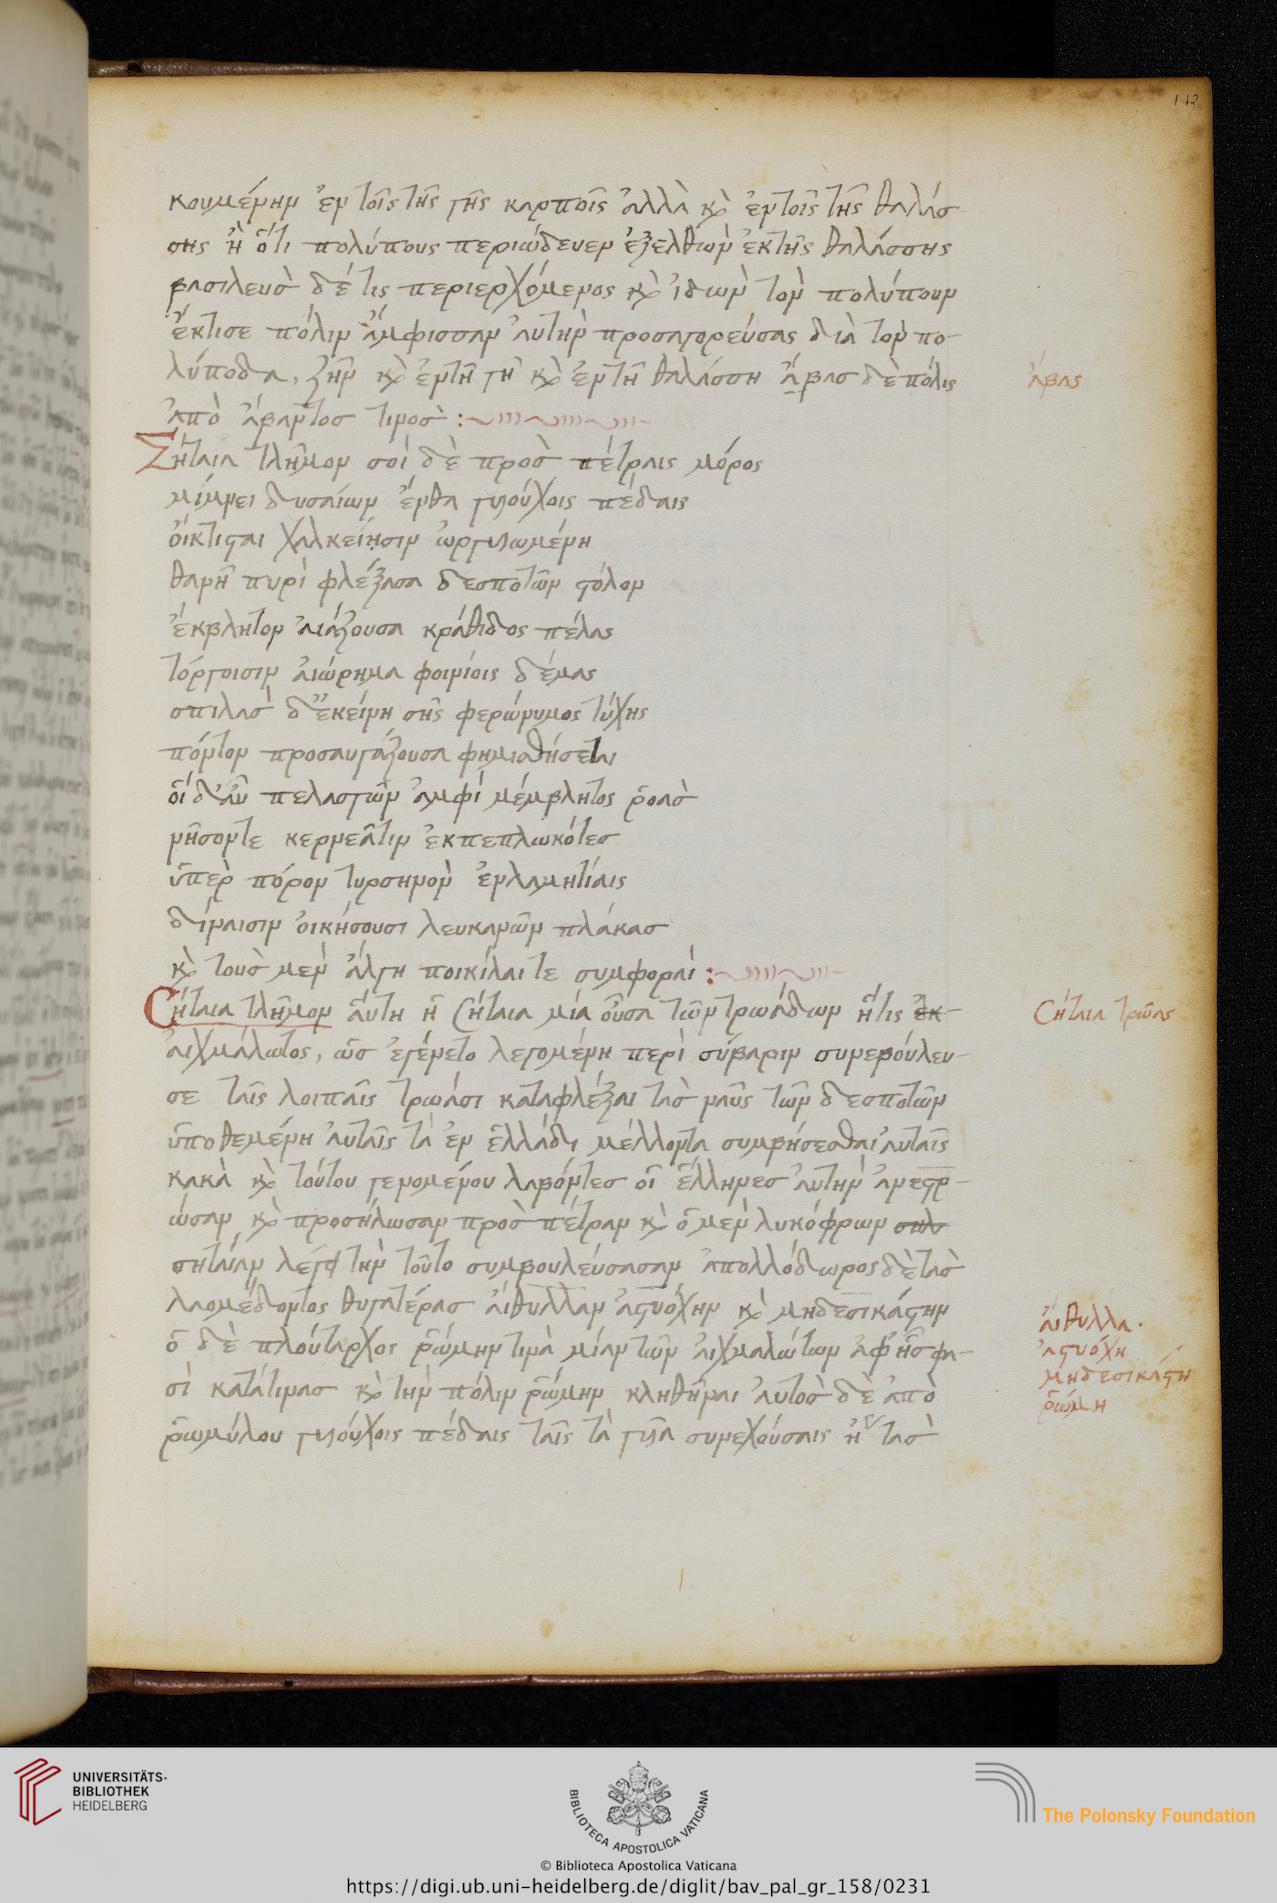 112
κουμένην ἐν τοῖς τῆς γῆς καρποῖς ἀλλὰ κὶ ἐν τοῖς τῆς θαλάσ-
σης ἢ ὅτι πολύπους περιώδευεν ἐξελθὼν ἐκ τῆς θαλάσσης
βασιλεὺσ δέ τις περιερχόμενος κὶ ἰδὼν τὸν πολύπουν
ἔκτισε πόλιν Ἄμφισσαν ἀυτὴν προσαγορεύσας διὰ τὸν πο-
λύποδα, ζῆν κὶ ἐν τῆ γῆ κὶ ἐν τῆ θαλάσση ἄβασ δὲ πόλις
ἄβας
ἀπὸ ἄβαντοσ τινοσ :
Σήταια τλῆμον σοί δὲ πρὸσ πέτραις μόρος
μίμνει δυσαίων ἔνθα γυιούχοις πέδαις
ὄικτιςαι χαλκείησιν ὠργυιωμένη
θανῆ πυρὶ φλέξασα δεσποτῶν ςόλον
ἔκβλητον ἀιάζουσα κράθιδος πέλας
τόργοισιν ἀιώρημα φοινίοις δέμας
σπιλὰσ δ' ἐκείνη σῆς φερώνυμος τύχης
πόντον προσαυγάζουσα φημισθήσεται
οἵ δ' ἂυ πελασγῶν ἀμφί μέμβλητος ῥοὰσ
νῆσόν τε κερνεᾶτιν ἐκπεπλωκότεσ
ὑπὲρ πόρον τυρσηνὸν ἐν λαμητίαις
δίναισιν ὀικήσουσι λευκανῶν πλάκασ
κὶ τοὺσ μὲν ἄλγη ποικίλαι τε συμφοραί :
Σήταια τλῆμον ἅυτη ἡ Σήταια μία ὂυσα τῶν τρωάδων ἥτις ἐκ-
Σήταια τρῶας
ἀιχμάλωτος, ὡσ ἐγένετο λεγομένη περὶ σύβαριν συνεβούλευ-
σε ταῖς λοιπαῖς τρωάσι καταφλέξαι τὰσ ναῦς τῶν δεσποτῶν
ὑποθεμένη ἀυταῖς τὰ ἐν ἑλλάδι μέλλοντα συμβήσεσθαι ἀυταῖς
κακὰ κὶ τούτου γενομένου λαβόντεσ οἱ ἕλληνεσ ἀυτὴν ἀνεςρ-
ώσαν κὶ προσήλωσαν πρὸσ πέτραν κὶ ὁ μὲν λυκόφρων
σηταίαν λέγει τὴν τοῦτο συμβουλεύσασαν ἀπολλόδωρος δὲ τὰσ
λαομέδοντος θυγατέρασ ἀίθυλλαν ἀςυόχην κὶ μηδεσικάςην
ἀίθυλλα.
ὁ δὲ πλούταρχος ῥώμην τινὰ μίαν τῶν ἀιχμαλώτων ἀφ' ἧσ φα-
ἀςυόχη
σὶ κατάτινασ κὶ τὴν πόλιν ῥώμην κληθῆναι ἀυτὸσ δὲ ἀπὸ
μηδεσικάςη
ῥώμη
ῥωμύλου γυιούχοις πέδαις ταῖς τὰ γυῖα συνεχούσαις ἢ τὰσ
UNIVERSITÄTS-
BIBLIOTHEK
HEIDELBERG
BIBLIOTECA APOSTOLICA VATICANA
The Polonsky Foundation
© Biblioteca Apostolica Vaticana
https://digi.ub.uni-heidelberg.de/diglit/bav_pal_gr_158/0231